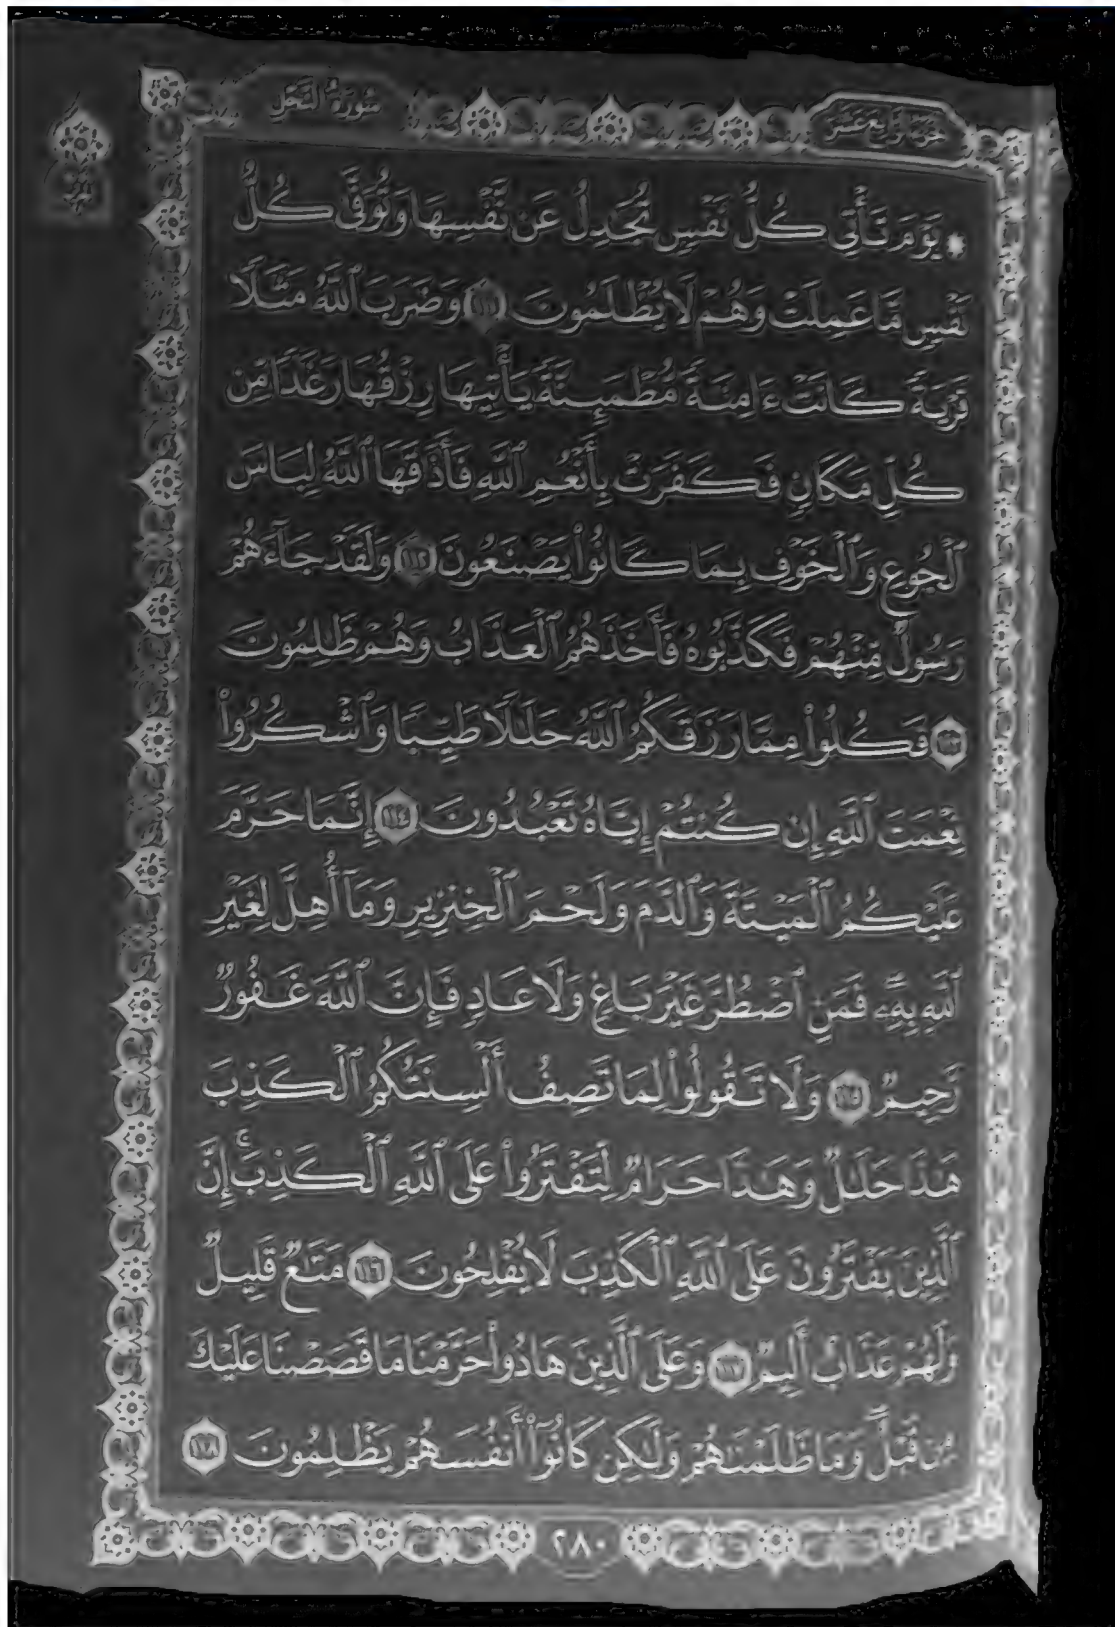 الجزء الرابع عشر
سورة النحل
۞ يَوۡمَ تَأۡتِي كُلُّ نَفۡسٖ تُجَٰدِلُ عَن نَّفۡسِهَا وَتُوَفَّىٰ كُلُّ
نَفۡسٖ مَّا عَمِلَتۡ وَهُمۡ لَا يُظۡلَمُونَ ١١١ وَضَرَبَ ٱللَّهُ مَثَلٗا
قَرۡيَةٗ كَانَتۡ ءَامِنَةٗ مُّطۡمَئِنَّةٗ يَأۡتِيهَا رِزۡقُهَا رَغَدٗا مِّن
كُلِّ مَكَانٖ فَكَفَرَتۡ بِأَنۡعُمِ ٱللَّهِ فَأَذَٰقَهَا ٱللَّهُ لِبَاسَ
ٱلۡجُوعِ وَٱلۡخَوۡفِ بِمَا كَانُواْ يَصۡنَعُونَ ١١٢ وَلَقَدۡ جَآءَهُمۡ
رَسُولٞ مِّنۡهُمۡ فَكَذَّبُوهُ فَأَخَذَهُمُ ٱلۡعَذَابُ وَهُمۡ ظَٰلِمُونَ
١١٣ فَكُلُواْ مِمَّا رَزَقَكُمُ ٱللَّهُ حَلَٰلٗا طَيِّبٗا وَٱشۡكُرُواْ
نِعۡمَتَ ٱللَّهِ إِن كُنتُمۡ إِيَّاهُ تَعۡبُدُونَ ١١٤ إِنَّمَا حَرَّمَ
عَلَيۡكُمُ ٱلۡمَيۡتَةَ وَٱلدَّمَ وَلَحۡمَ ٱلۡخِنزِيرِ وَمَآ أُهِلَّ لِغَيۡرِ
ٱللَّهِ بِهِۦۖ فَمَنِ ٱضۡطُرَّ غَيۡرَ بَاغٖ وَلَا عَادٖ فَإِنَّ ٱللَّهَ غَفُورٞ
رَّحِيمٞ ١١٥ وَلَا تَقُولُواْ لِمَا تَصِفُ أَلۡسِنَتُكُمُ ٱلۡكَذِبَ
هَٰذَا حَلَٰلٞ وَهَٰذَا حَرَامٞ لِّتَفۡتَرُواْ عَلَى ٱللَّهِ ٱلۡكَذِبَۚ إِنَّ
ٱلَّذِينَ يَفۡتَرُونَ عَلَى ٱللَّهِ ٱلۡكَذِبَ لَا يُفۡلِحُونَ ١١٦ مَتَٰعٞ قَلِيلٞ
وَلَهُمۡ عَذَابٌ أَلِيمٞ ١١٧ وَعَلَى ٱلَّذِينَ هَادُواْ حَرَّمۡنَا مَا قَصَصۡنَا عَلَيۡكَ
مِن قَبۡلُۖ وَمَا ظَلَمۡنَٰهُمۡ وَلَٰكِن كَانُوٓاْ أَنفُسَهُمۡ يَظۡلِمُونَ ١١٨
٢٨٠